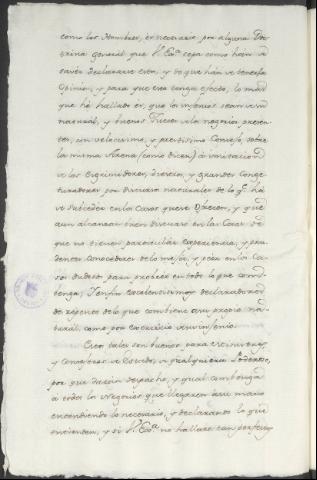 como los Hombres, es necesario por alguna Doc
trina general que V. Exª. sepa como han de
saver declararse esta, y lo que han de tener
Opinion, y para que esto tenga efecto, lo mas
que ha hallado es, que los ingenios sean
natural, y buenos Jueces de la negocios presen
tes, con velocissimo, y prestissimo Consejo, sobre
la misma Arena (como dicen) á imitacion
de los Esgrimidores, diestros, y grandes Conge
turadores por discurso naturales de lo q.e há
de suceder en los Casos que se ofrecen, y que
aun alcanzan buen discurso en las Casas de
que no tienen particular experiencia, y pru
dentes Conocedores de lo mejor, y peor en los Ca
sos dudosos para proveer en todo lo que com
benga; Y en fin excelentissimos declaradores
de repente de lo que combiene á su propio na
tural, como por exercicio de su ingenio.
Estos tales son buenos para Virreyes,
y Consejeros de Estado de qualquiera Poderoso,
por que darán despacho, y qual combenga
á todos los Negocios que llegaren á sus manos
entendiendo lo necesario, y declarando lo que
entienden, y si V. Exª. no hallare tan perfectos